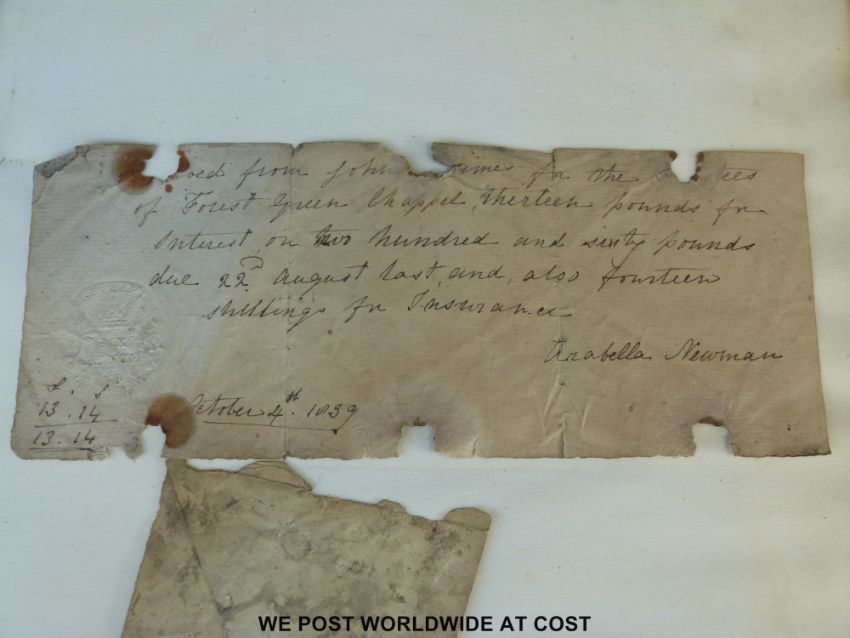 from John for the
of Forest Green Chappel, thirteen pounds for
Interest on two hundred and sixty pounds
due 22d August last, and, also fourteen
shillings for Insurance
Arabella Newman
£ . s
13 . 14
13 . 14
October 4th. 1839
WE POST WORLDWIDE AT COST